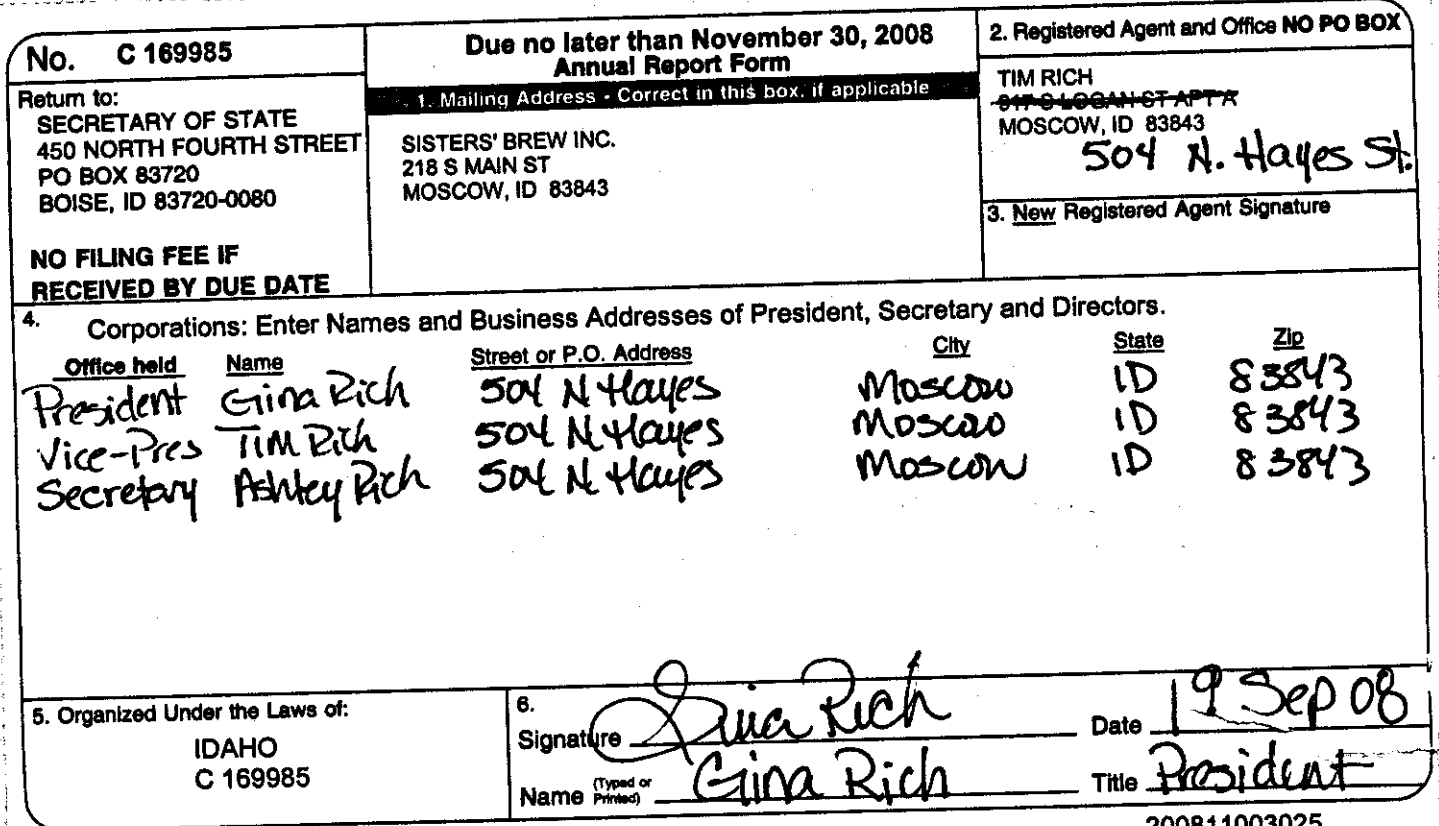 No. C 169985
Return to:
SECRETARY OF STATE
450 NORTH FOURTH STREET
PO BOX 83720
BOISE, ID 83720-0080
NO FILING FEE IF
RECEIVED BY DUE DATE
Due no later than November 30, 2008
Annual Report Form
1. Mailing Address - Correct in this box, if applicable
SISTERS' BREW INC.
218 S MAIN ST
MOSCOW, ID 83843
2. Registered Agent and Office NO PO BOX
TIM RICH
LOGAN ST APT A
MOSCOW, ID 83843
504 N. Hayes St.
3. New Registered Agent Signature
4. Corporations: Enter Names and Business Addresses of President, Secretary and Directors.
Office held Name Street or P.O. Address City State Zip
President Gina Rich 504 N Hayes Moscow ID 83843
Vice-Pres Tim Rich 504 N Hayes Moscow ID 83843
Secretary Ashley Rich 504 N Hayes Moscow ID 83843
5. Organized Under the Laws of:
IDAHO
C 169985
6.
Signature Gina Rich Date 19 Sep 08
Name (Typed or Printed) Gina Rich Title President
200811003025